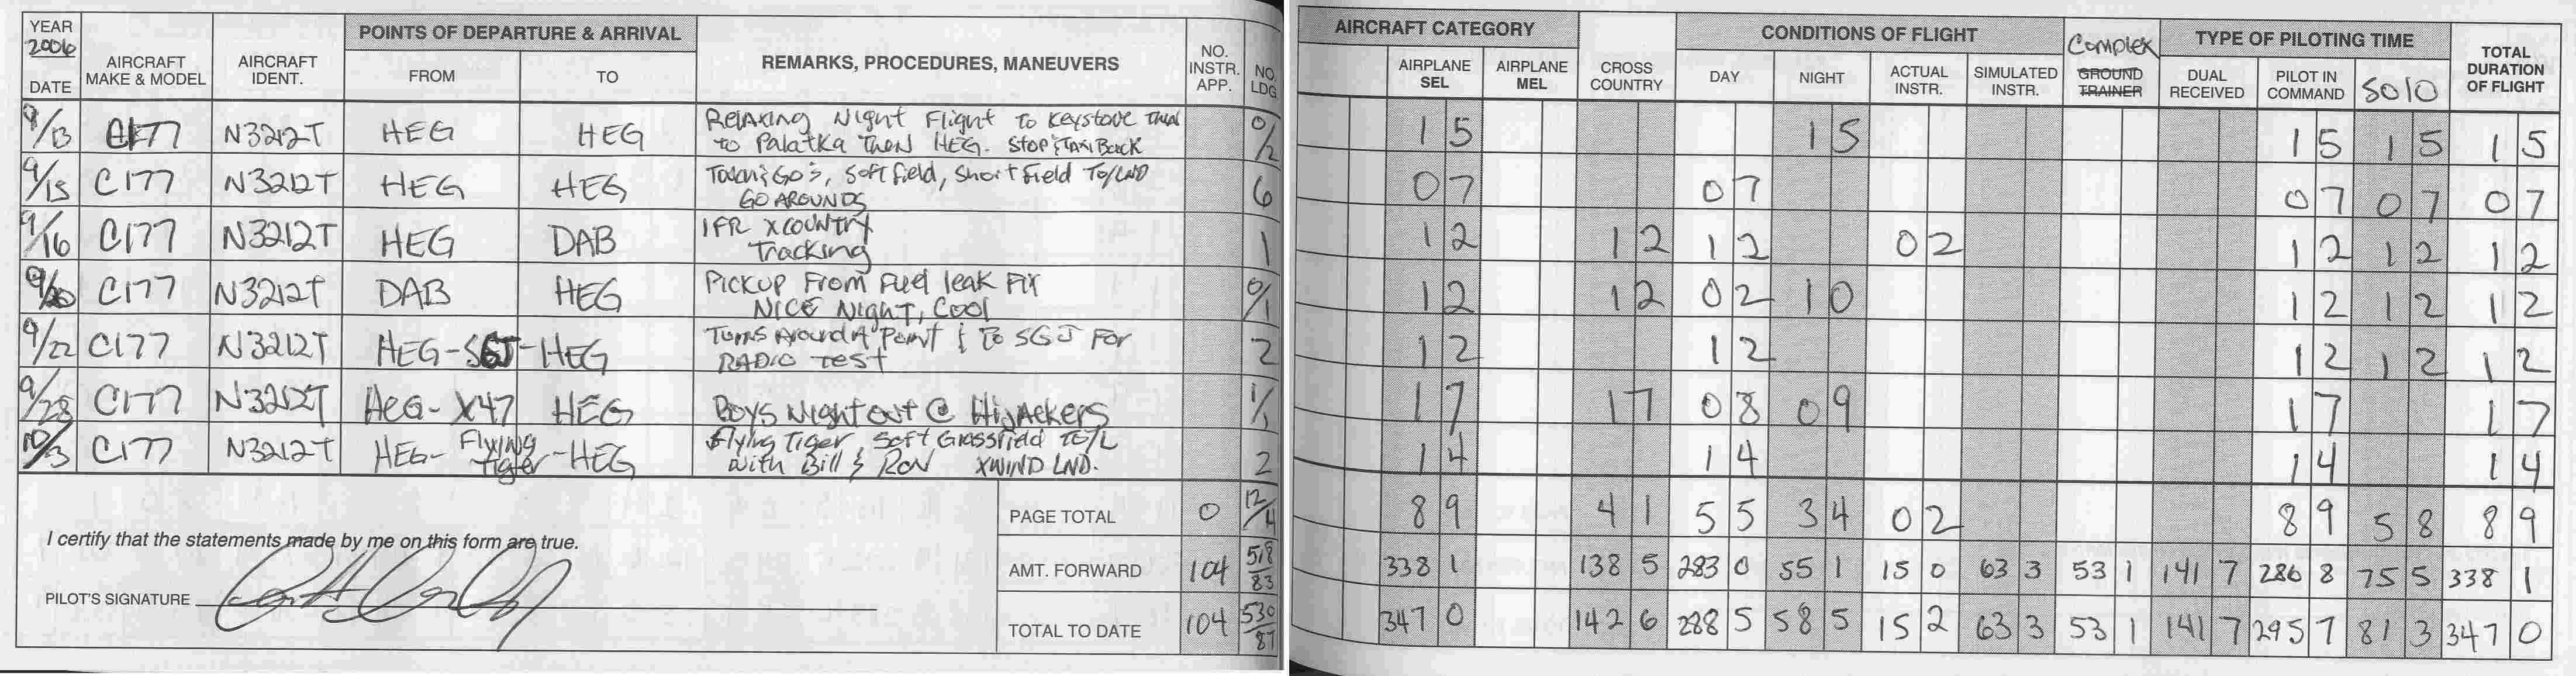 YEAR 2006 DATE AIRCRAFT MAKE & MODEL AIRCRAFT IDENT. POINTS OF DEPARTURE & ARRIVAL FROM TO REMARKS, PROCEDURES, MANEUVERS NO. INSTR. APP. NO. LDG.
AIRCRAFT CATEGORY AIRPLANE SEL AIRPLANE MEL CROSS COUNTRY CONDITIONS OF FLIGHT DAY NIGHT ACTUAL INSTR. SIMULATED INSTR. Complex GROUND TRAINER TYPE OF PILOTING TIME DUAL RECEIVED PILOT IN COMMAND SOLO TOTAL DURATION OF FLIGHT
9/13 C177 N3212T HEG HEG Relaxing Night Flight To Keystone Then to Palatka Then HEG. Stop & Taxi Back 0/2 1 5 1 5 1 5 1 5 1 5
9/15 C177 N3212T HEG HEG Touch & Go's, Soft field, Short Field TO/LND GO AROUNDS 6 0 7 0 7 0 7 0 7 0 7
9/16 C177 N3212T HEG DAB IFR X COUNTRY Tracking 1 1 2 1 2 1 2 0 2 1 2 1 2 1 2
9/20 C177 N3212T DAB HEG Pickup From Fuel leak Fix NICE Night, Cool 0/1 1 2 1 2 0 2 1 0 1 2 1 2 1 2
9/22 C177 N3212T HEG-SGJ-HEG Turns Around A Point & To SGJ For RADIO TEST 2 1 2 1 2 1 2 1 2 1 2
9/28 C177 N3212T HEG- X47 HEG Boys Night out @ Hijackers 1/1 1 7 1 7 0 8 0 9 1 7 1 7
10/3 C177 N3212T HEG- Flying Tiger -HEG Flying Tiger, Soft Grassfield TO/L With Bill & Ron XWIND LND. 2 1 4 1 4 1 4 1 4
PAGE TOTAL 0 12/4 8 9 4 1 5 5 3 4 0 2 8 9 5 8 8 9
I certify that the statements made by me on this form are true.
AMT. FORWARD 104 518/83 338 1 138 5 283 0 55 1 15 0 63 3 53 1 141 7 286 8 75 5 338 1
PILOT'S SIGNATURE
TOTAL TO DATE 104 530/87 347 0 142 6 288 5 58 5 15 2 63 3 53 1 141 7 295 7 81 3 347 0